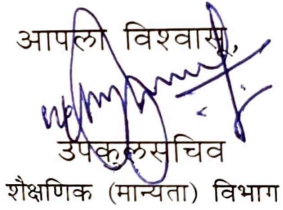 आपला विश्वासू,
उपकुलसचिव
शैक्षणिक (मान्यता) विभाग